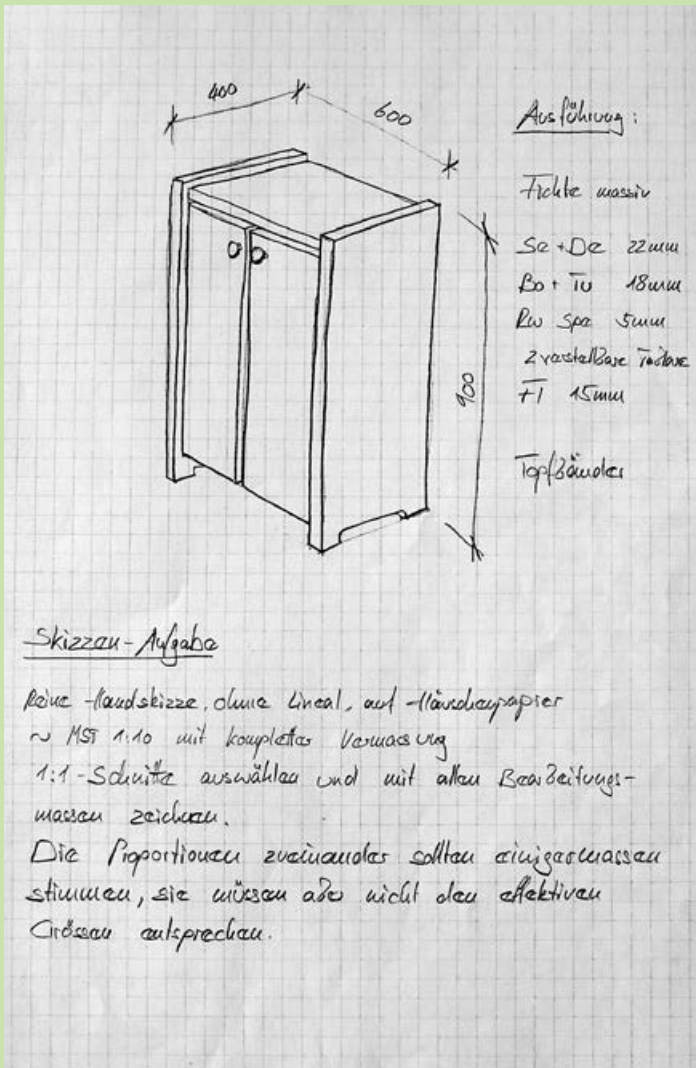 400
600
Ausführung:
Fichte massiv
Se + De 22mm
Bo + Tü 18mm
Rw Spe 5mm
2 verstellbare Tablare
FT 15mm
900
Topfbänder
Skizzen-Aufgabe
Reine Handskizze, ohne Lineal, auf Häuschenpapier
~ MST 1:10 mit kompletter Vermassung
1:1-Schnitte auswählen und mit allen Bearbeitungs-
massen zeichnen.
Die Proportionen zueinander sollten einigermassen
stimmen, sie müssen aber nicht den effektiven
Grössen entsprechen.